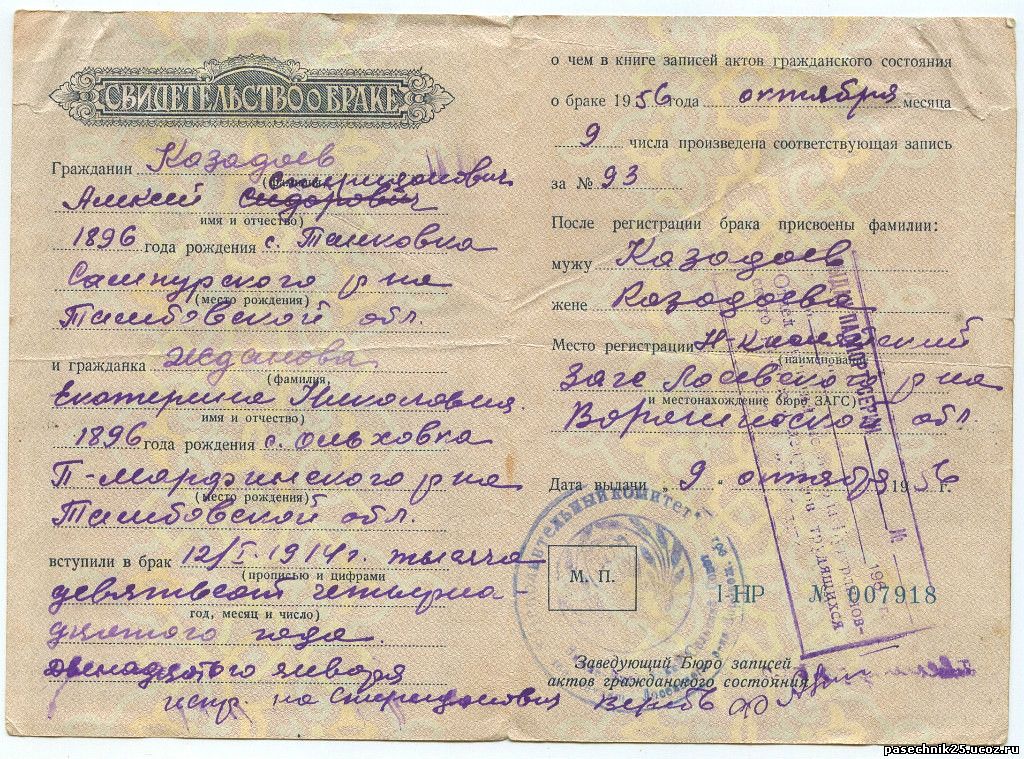 СВИДЕТЕЛЬСТВО О БРАКЕ
Гражданин Казадоев
(фамилия) Спиридонович
Алексей Сидорович
имя и отчество)
1896 года рождения с. Тамковка
Сампурского р-на
(место рождения)
Тамбовской обл.
и гражданка Жданова
(фамилия,
Екатерина Николаевна
имя и отчество)
1896 года рождения с. Ольховка
П-Марфинского р-на
(место рождения)
Тамбовской обл.
вступили в брак 12/I-1914 г. тысяча
(прописью и цифрами
девятьсот четырна-
год, месяц и число)
дцатого года
двенадцатого января
испр. на Спиридонович
о чем в книге записей актов гражданского состояния
о браке 1956 года октября месяца
9 числа произведена соответствующая запись
за № 93
После регистрации брака присвоены фамилии:
мужу Казадоев
жене Казадоева
Место регистрации Н-Кислянский
(наименование
Загс Лосевского р-на
и местонахождение бюро ЗАГС)
Воронежской обл.
Дата выдачи „9" октября 1956 г.
М. П.
I-НР № 007918
Заведующий Бюро записей
актов гражданского состояния
Верить
pasechnik25.ucoz.ru